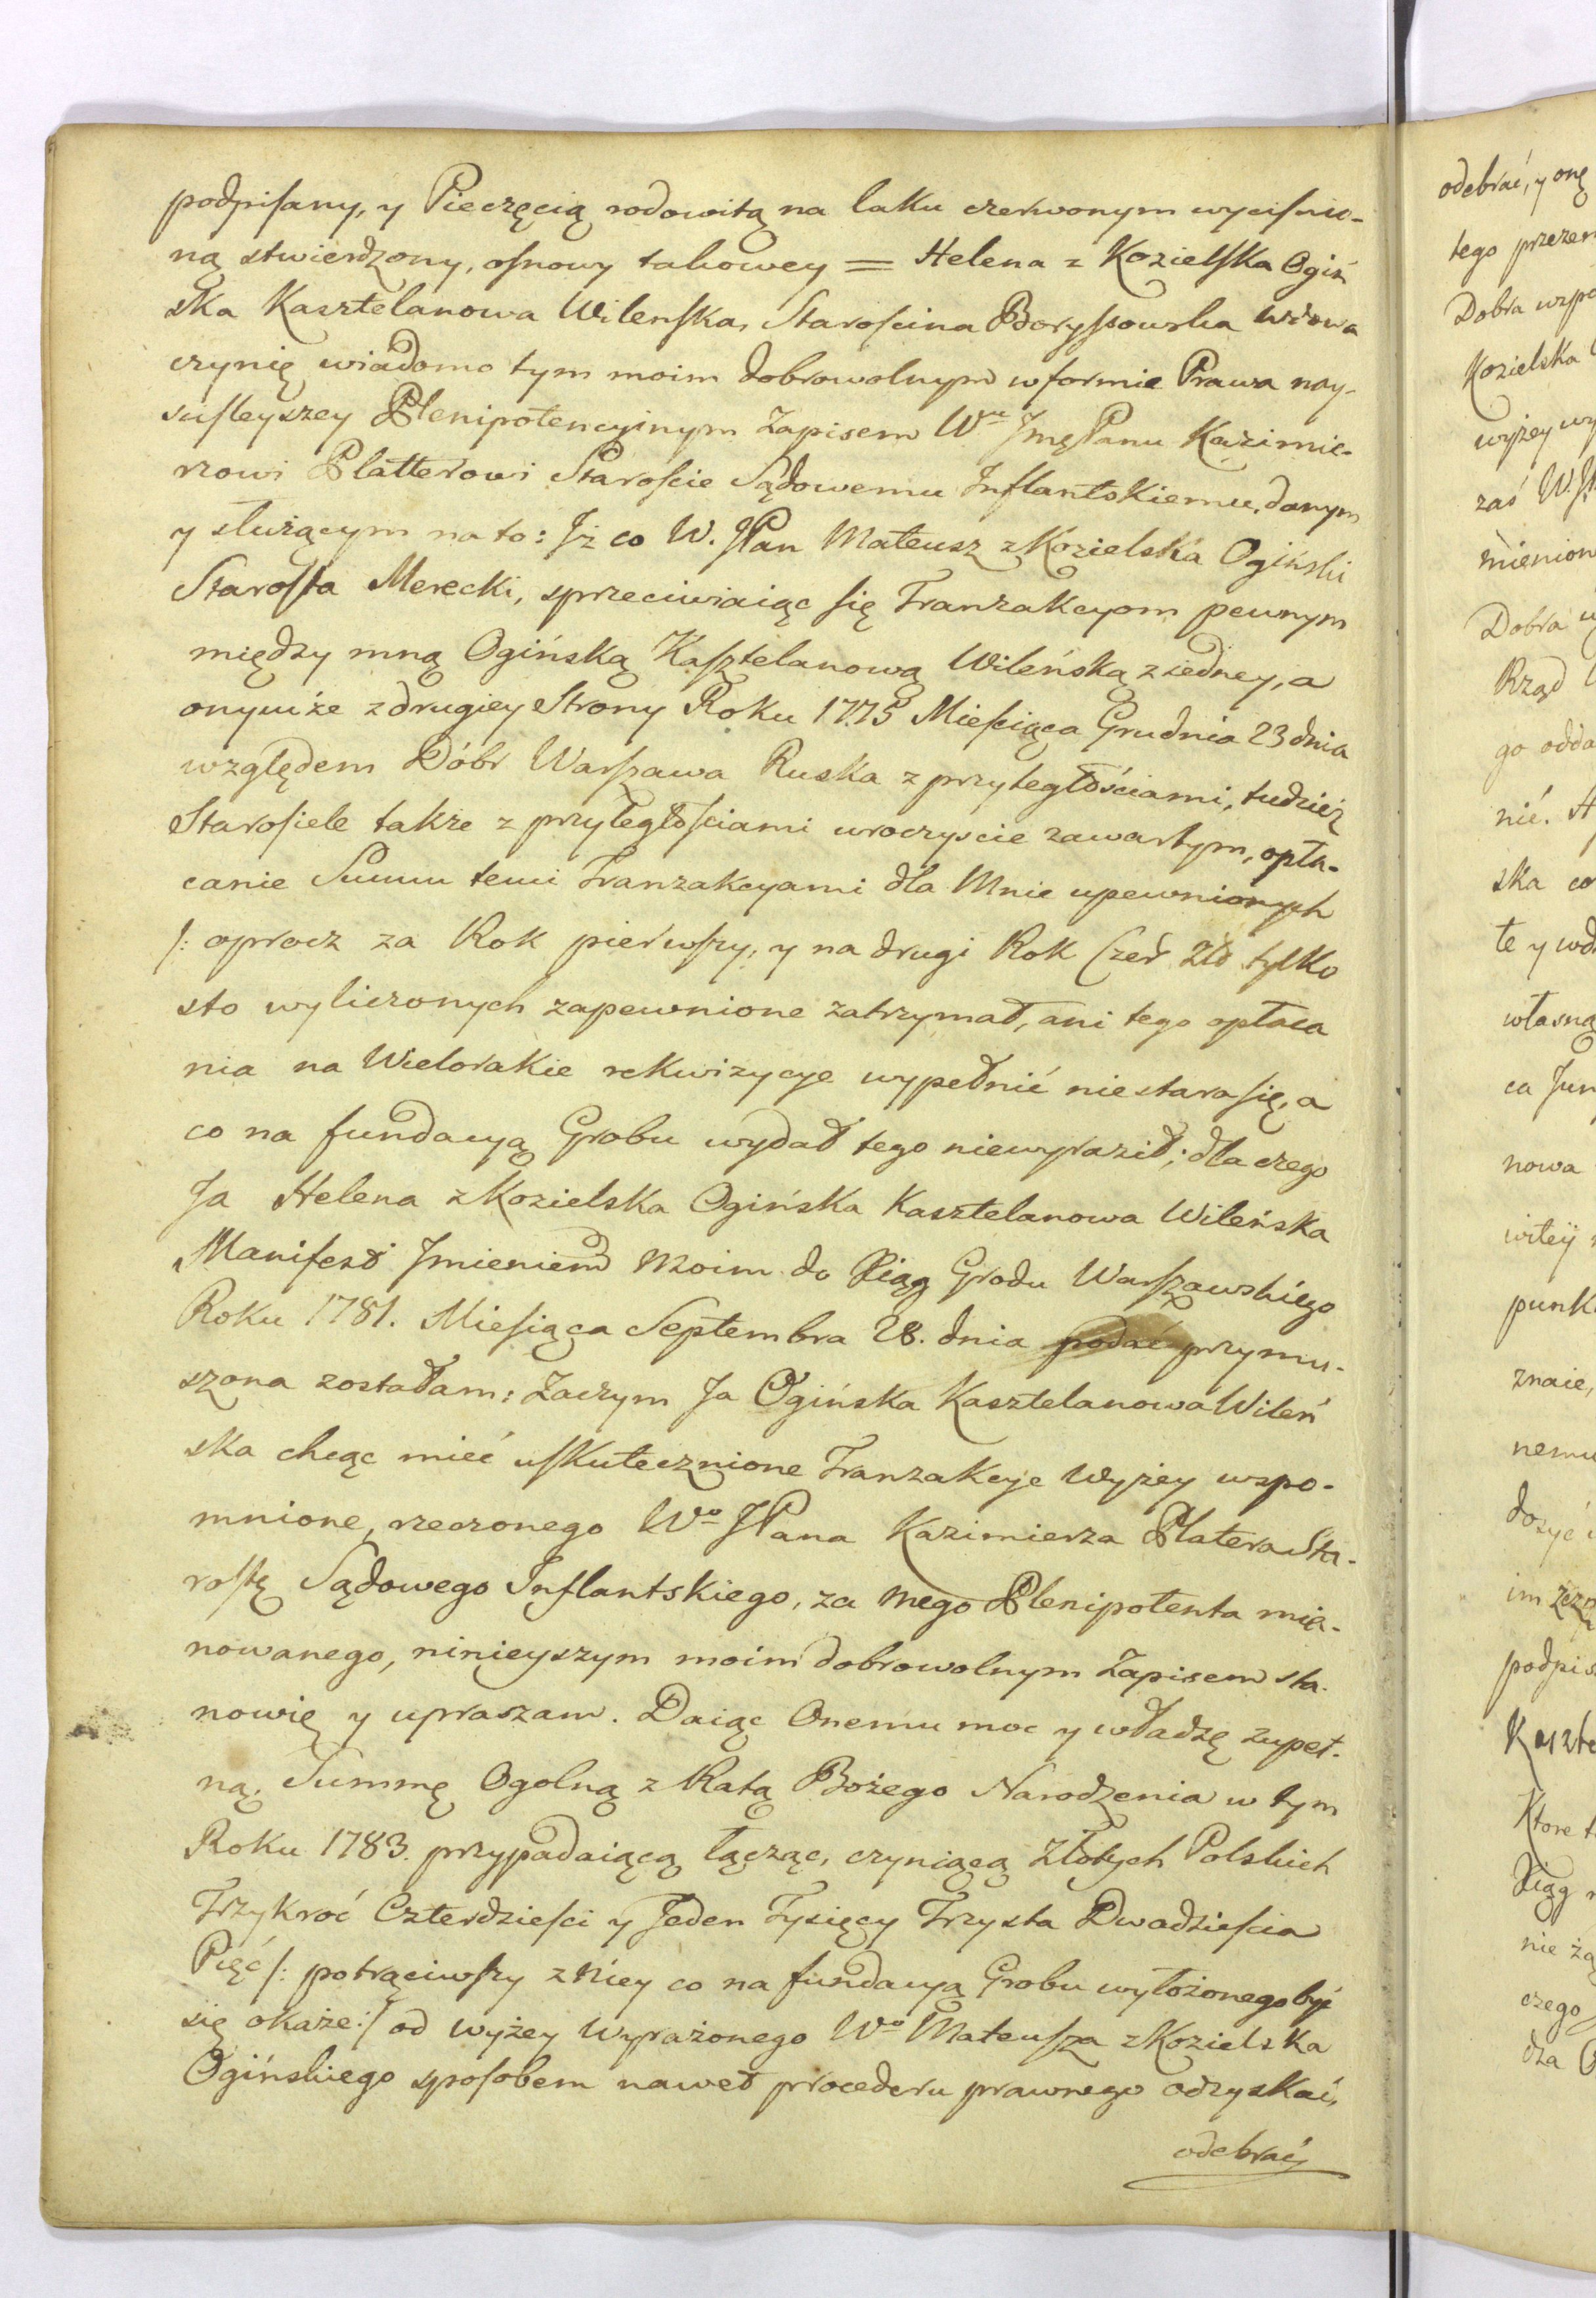 podpisany, y Pieczęcią rodowitą na laku czerwonym wycisnio-
ną stwierdzony, osnowy takowey = Helena z Kozielska Ogiń
ska Kasztelanowa Wilenska, Starościna Boryssowska wdowa
czynię wiadomo tym moim dobrowolnym w formie Prawa nay-
sciśleyszey Plenipotencyinym Zapisem Wmu Jmę Panu Kazimie-
rzowi Platterowi Staroście Sądowemu Inflantskiemu, danym
y służącym na to: Iż co W. JPan Mateusz z Kozielska Ogiński
Starosta Merecki, sprzeciwiaiąc się Tranzakcyom pewnym
między mną Ogińską Kasztelanową Wileńską z iedney, a
onymże z drugiey Strony Roku 1775 Miesiąca Grudnia 23 dnia
względem Dóbr Warszawa Ruska z przyległościami, tudzież
Starosiele takze z przyległościami uroczyscie zawartym, opła-
canie Summ temi Tranzakcyami dla Mnie upewnionych
/: oprocz za Rok pierwszy, y na drugi Rok Czer Zło tylko
sto wyliczonych zapewnione zatrzymał, ani tego opłaca
nia na Wielorakie rekwizycye wypełnić niestara się, a
co na fundacyą Grobu wydał tego niewyraził; dla czego
Ja Helena z Kozielska Ogińska Kasztelanowa Wileńska
Manifest Imieniem Moim do Xiąg Grodu Warszawskiego
Roku 1781. Miesiąca Septembra 28. dnia podać przymu-
szona zostałam: Zaczym Ja Ogińska Kasztelanowa Wileń
ska chcąc mieć uskutecznione Tranzakcye Wyżey wspo-
mnione, rzeczonego Wo JPana Kazimierza Platera Sta-
rostę Sądowego Inflantskiego, za mego Plenipotenta mia-
nowanego, ninieyszym moim dobrowolnym Zapisem sta-
nowię y upraszam. Daiąc Onemu moc y władzę zupeł-
ną, Summę Ogolną z Ratą Bożego Narodzenia w tym
Roku 1783. przypadaiącą łącząc, czyniącą Złotych Polskich
Trzykroć Czterdzieści y Jeden Tysięcy Trzysta Dwadzieścia
Pięć /: potrąciwszy z Niey co na fundacyą Grobu wyłożonego być
się okaże :/ od wyżey Wyrażonego Wo Mateusza z Kozielska
Ogińskiego sposobem nawet procederu prawnego odzyskać,
odebrać,
odebrać, y onę
tego przezem
Dobra wspo
Kozielska
wyżey wy
zaś W. JP
mienion
Dobra
Rząd
go odda
nić. H
ska co
te y wd
własną
ca Jun
nowa
witey
punk
znaie,
nemu
dosyć
im
podpis
Kaszte
Ktore t
Xiąg
nie żą
czego
dza